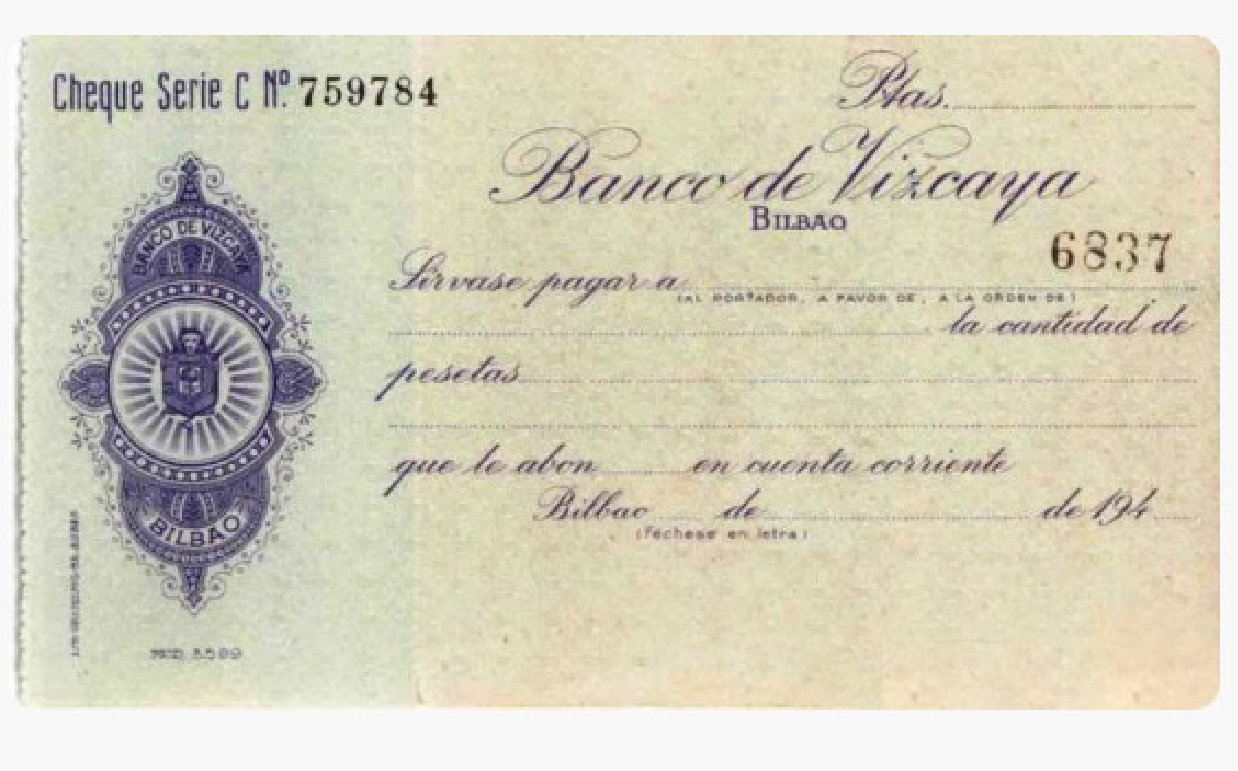 Cheque Serie C Nº. 759784
Ptas.
Banco de Vizcaya
BILBAO
6837
Sírvase pagar a
(AL PORTADOR, A FAVOR DE, A LA ORDEN DE)
la cantidad de
pesetas
que le abon en cuenta corriente
Bilbao de de 194
(Féchese en letra)
BANCO DE VIZCAYA
BILBAO